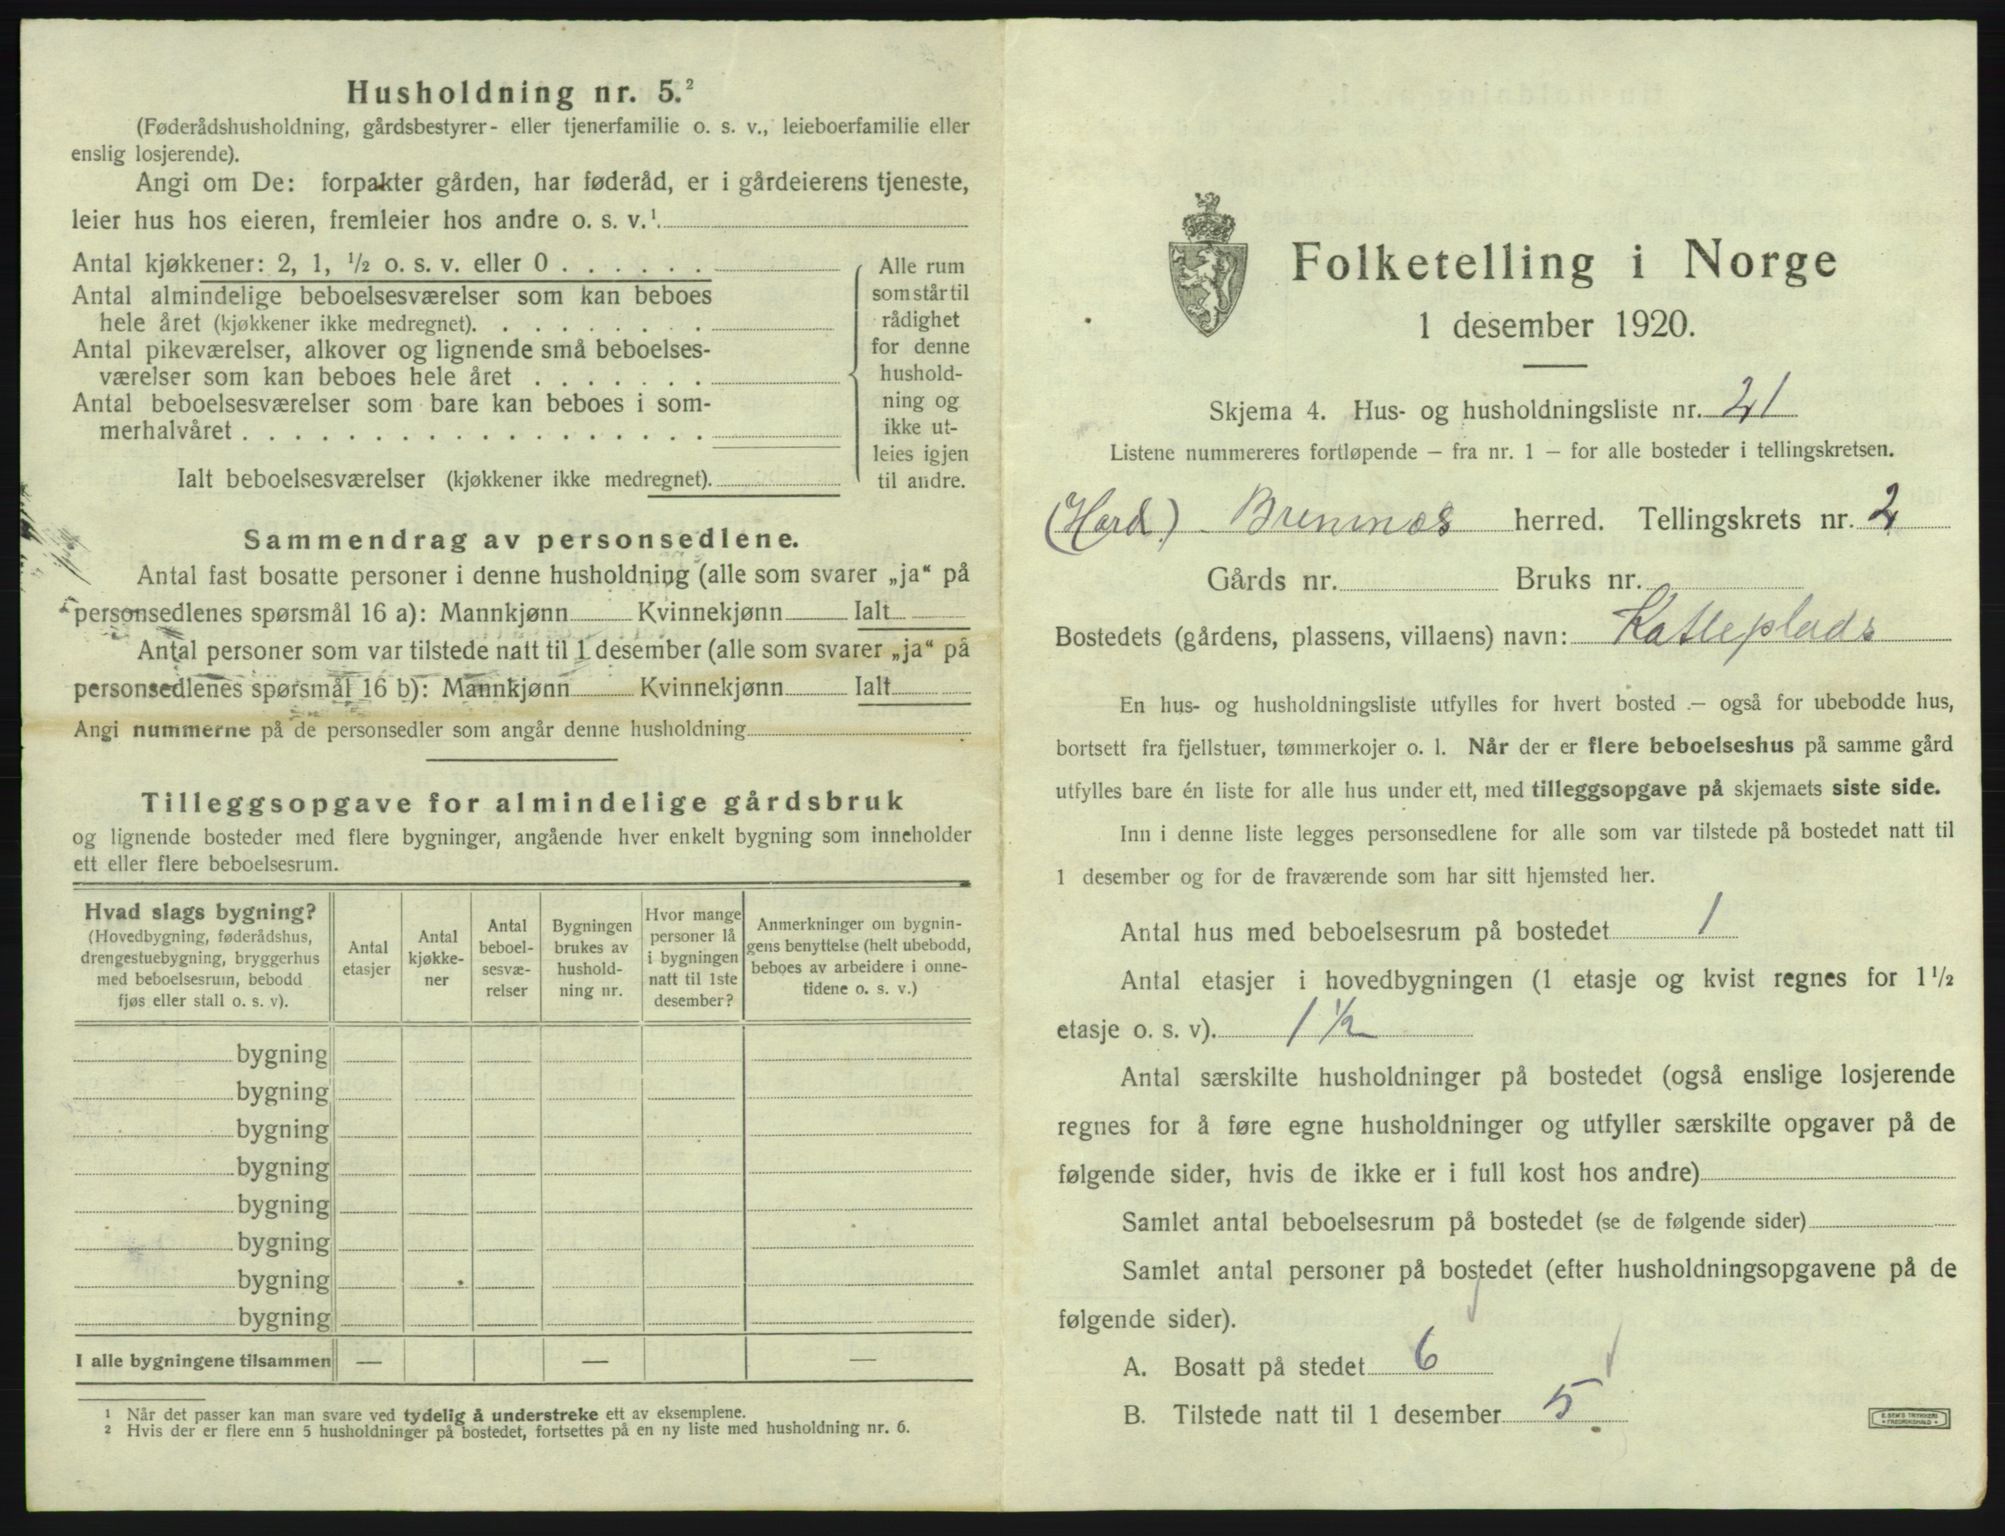 Husholdning nr. 5.²
(Føderådshusholdning, gårdsbestyrer- eller tjenerfamilie o. s. v., leieboerfamilie eller
enslig losjerende).
Angi om De: forpakter gården, har føderåd, er i gårdeierens tjeneste,
leier hus hos eieren, fremleier hos andre o. s. v.¹.
Antal kjøkkener: 2, 1, ½ o. s. v. eller 0 . . . . . .
Antal almindelige beboelsesværelser som kan beboes
hele året (kjøkkener ikke medregnet). . . . . . . . .
Antal pikeværelser, alkover og lignende små beboelses-
værelser som kan beboes hele året . . . . . . .
Antal beboelsesværelser som bare kan beboes i som-
merhalvåret . . . . . . . . . . . . . . . . . .
Ialt beboelsesværelser (kjøkkener ikke medregnet).
Alle rum
som står til
rådighet
for denne
hushold-
ning og
ikke ut-
leies igjen
til andre.
Sammendrag av personsedlene.
Antal fast bosatte personer i denne husholdning (alle som svarer „ja“ på
personsedlenes spørsmål 16 a): Mannkjønn Kvinnekjønn Ialt
Antal personer som var tilstede natt til 1 desember (alle som svarer „ja“ på
personsedlenes spørsmål 16 b): Mannkjønn Kvinnekjønn Ialt
Angi nummerne på de personsedler som angår denne husholdning
Tilleggsopgave for almindelige gårdsbruk
og lignende bosteder med flere bygninger, angående hver enkelt bygning som inneholder
ett eller flere beboelsesrum.
Hvad slags bygning?
(Hovedbygning, føderådshus,
drengestuebygning, bryggerhus
med beboelsesrum, bebodd
fjøs eller stall o. s. v).
Antal
etasjer
Antal
kjøkke-
ner
Antal
beboel-
sesvæ-
relser
Bygningen
brukes av
hushold-
ning nr.
Hvor mange
personer lå
i bygningen
natt til 1ste
desember?
Anmerkninger om bygnin-
gens benyttelse (helt ubebodd,
beboes av arbeidere i onne-
tidene o. s. v.)
bygning
bygning
bygning
bygning
bygning
bygning
bygning
bygning
I alle bygningene tilsammen — — —
¹ Når det passer kan man svare ved tydelig å understreke ett av eksemplene.
² Hvis der er flere enn 5 husholdninger på bostedet, fortsettes på en ny liste med husholdning nr. 6.
Folketelling i Norge
1 desember 1920.
Skjema 4. Hus- og husholdningsliste nr. 21
Listene nummereres fortløpende — fra nr. 1 — for alle bosteder i tellingskretsen.
(Hord.) Bremnes herred. Tellingskrets nr. 2
Gårds nr. Bruks nr.
Bostedets (gårdens, plassens, villaens) navn: Katleplads
En hus- og husholdningsliste utfylles for hvert bosted — også for ubebodde hus,
bortsett fra fjellstuer, tømmerkojer o. l. Når der er flere beboelseshus på samme gård
utfylles bare én liste for alle hus under ett, med tilleggsopgave på skjemaets siste side.
Inn i denne liste legges personsedlene for alle som var tilstede på bostedet natt til
1 desember og for de fraværende som har sitt hjemsted her.
Antal hus med beboelsesrum på bostedet 1
Antal etasjer i hovedbygningen (1 etasje og kvist regnes for 1½
etasje o. s. v). 1½
Antal særskilte husholdninger på bostedet (også enslige losjerende
regnes for å føre egne husholdninger og utfyller særskilte opgaver på de
følgende sider, hvis de ikke er i full kost hos andre)
Samlet antal beboelsesrum på bostedet (se de følgende sider)
Samlet antal personer på bostedet (efter husholdningsopgavene på de
følgende sider).
A. Bosatt på stedet 6
B. Tilstede natt til 1 desember 5